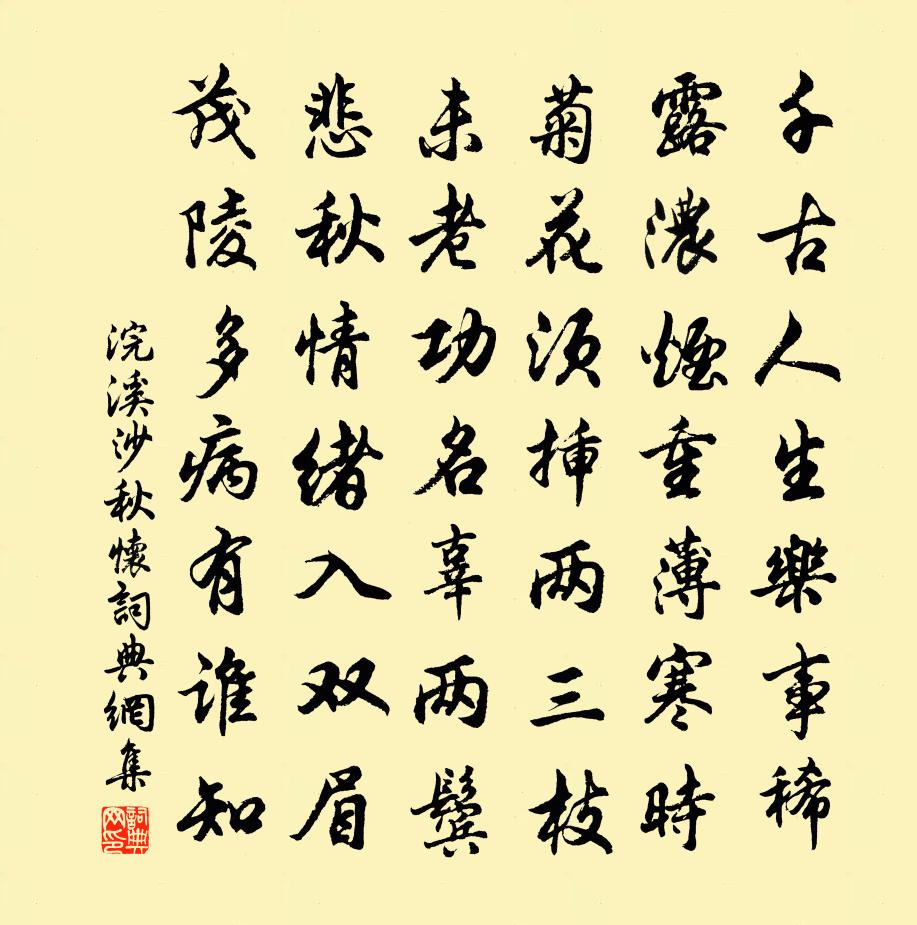 千古人生樂事稀
露濃煙重薄寒時
菊花須插兩三枝
未老功名辜兩鬢
悲秋情緒入双眉
茂陵多病有誰知
浣溪沙秋懷詞典網集
詞典
网印